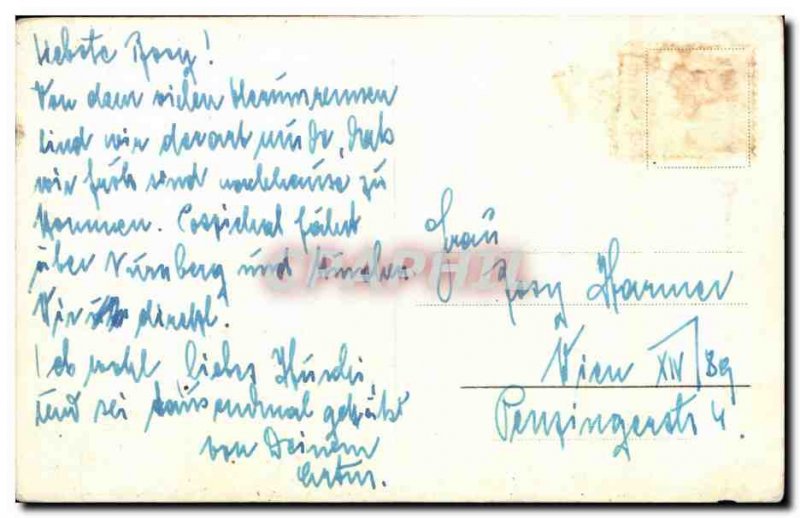 Liebste Rosy!
Von dem vielen Herumrennen
sind wir derart müde, daß
wir froh sind nachhause zu
kommen. Pospichal fährt
über Nürnberg und
Wir direkt.
Leb wohl liebes Huschi,
und sei tausendmal geküßt
von Deinem
Artur.
Frau
Rosy Harmer
Wien XIV/89
Penzingerstr 4.